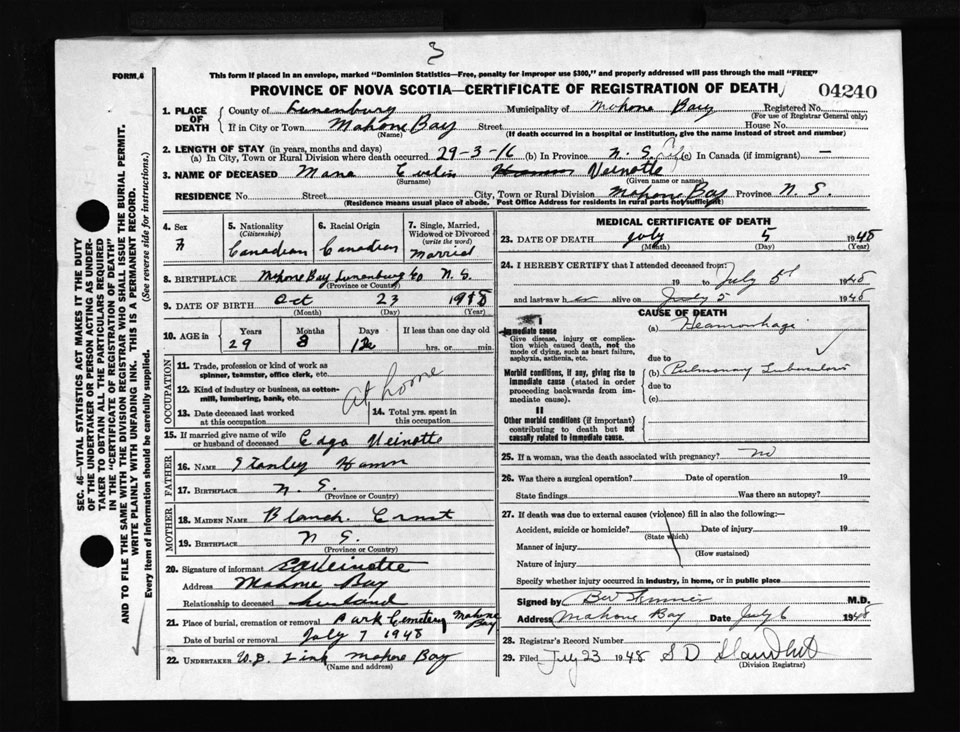 3
FORM 6
This form if placed in an envelope, marked "Dominion Statistics—Free, penalty for improper use $300," and properly addressed will pass through the mail "FREE"
PROVINCE OF NOVA SCOTIA—CERTIFICATE OF REGISTRATION OF DEATH 04240
SEC. 46—VITAL STATISTICS ACT MAKES IT THE DUTY OF THE UNDERTAKER OR PERSON ACTING AS UNDERTAKER TO OBTAIN ALL THE PARTICULARS REQUIRED IN THE "CERTIFICATE OF REGISTRATION OF DEATH"
AND TO FILE THE SAME WITH THE DIVISION REGISTRAR WHO SHALL ISSUE THE BURIAL PERMIT.
WRITE PLAINLY WITH UNFADING INK. THIS IS A PERMANENT RECORD.
Every item of information should be carefully supplied. (See reverse side for instructions.)
1. PLACE OF DEATH County of Lunenburg Municipality of Mahone Bay Registered No.
(For use of Registrar General only)
If in City or Town Mahone Bay Street House No.
(Name) (If death occurred in a hospital or institution, give the name instead of street and number)
2. LENGTH OF STAY (in years, months and days)
(a) In City, Town or Rural Division where death occurred 29-3-16 (b) In Province N.S. (c) In Canada (if immigrant) —
3. NAME OF DECEASED Evelin Veinotte
(Surname) (Given name or names)
RESIDENCE No. Street City, Town or Rural Division Mahone Bay Province N.S.
(Residence means usual place of abode. Post Office Address for residents in rural parts not sufficient)
4. Sex 5. Nationality 6. Racial Origin 7. Single, Married,
(Citizenship) Widowed or Divorced
(write the word)
F Canadian Canadian Married
8. BIRTHPLACE Mahone Bay Lunenburg Co N.S.
(Province or Country)
9. DATE OF BIRTH Oct 23 1918
(Month) (Day) (Year)
10. AGE in Years Months Days If less than one day old
29 8 12 hrs. or min.
OCCUPATION
11. Trade, profession or kind of work as
spinner, teamster, office clerk, etc.
12. Kind of industry or business, as cotton-
mill, lumbering, bank, etc. at home
13. Date deceased last worked 14. Total yrs. spent in
at this occupation this occupation
15. If married give name of wife
or husband of deceased Veinotte
FATHER
16. NAME Stanley Hamm
17. BIRTHPLACE N.S.
(Province or Country)
MOTHER
18. MAIDEN NAME Blanch. Ernst
19. BIRTHPLACE N S.
(Province or Country)
20. Signature of informant Veinotte
Address Mahone Bay
Relationship to deceased husband
21. Place of burial, cremation or removal Park Cemetery Mahone Bay
Date of burial or removal July 7 1948
22. UNDERTAKER Mahone Bay
(Name and address)
MEDICAL CERTIFICATE OF DEATH
23. DATE OF DEATH July 5 1948
(Month) (Day) (Year)
24. I HEREBY CERTIFY that I attended deceased from:
19 to July 5 1948
and last saw her alive on July 5 1948
CAUSE OF DEATH
I
Immediate cause (a) Heamorhage
Give disease, injury or complica-
tion which caused death, not the
mode of dying, such as heart failure,
asphyxia, asthenia, etc. due to
Morbid conditions, if any, giving rise to (b) Pulmonary Tuberculosis
immediate cause (stated in order due to
proceeding backwards from im-
mediate cause). (c)
II
Other morbid conditions (if important)
contributing to death but not
causally related to immediate cause.
25. If a woman, was the death associated with pregnancy? no
26. Was there a surgical operation? Date of operation 19
State findings Was there an autopsy?
27. If death was due to external causes (violence) fill in also the following:—
Accident, suicide or homicide? Date of injury 19
(State which)
Manner of injury
(How sustained)
Nature of injury
Specify whether injury occurred in industry, in home, or in public place
Signed by M.D.
Address Mahone Bay Date July 6 1948
28. Registrar's Record Number
29. Filed July 23 1948 S D
(Division Registrar)